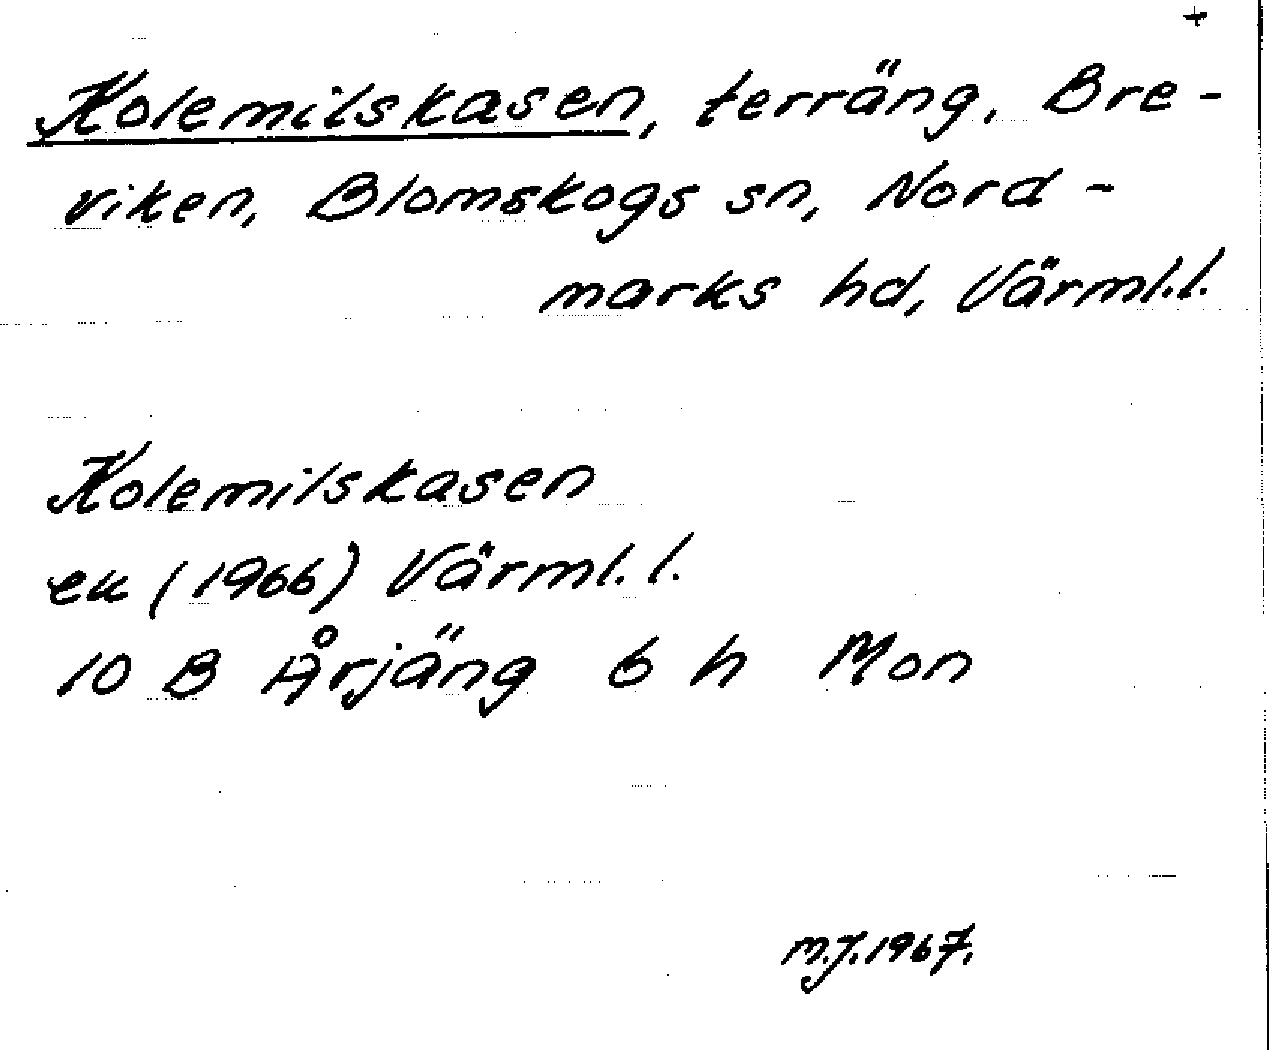 +
Kolemilskasen, terräng, Bre-
viken, Blomskogs sn, Nord-
marks hd, Värml.l.
Kolemilskasen
ek (1966) Värml.l.
10 B Årjäng 6 h Mon
M.J.1967.